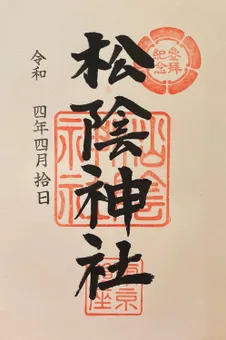 参拝記念
松陰神社
松陰神社
東京
鎮座
令和 四年四月拾日